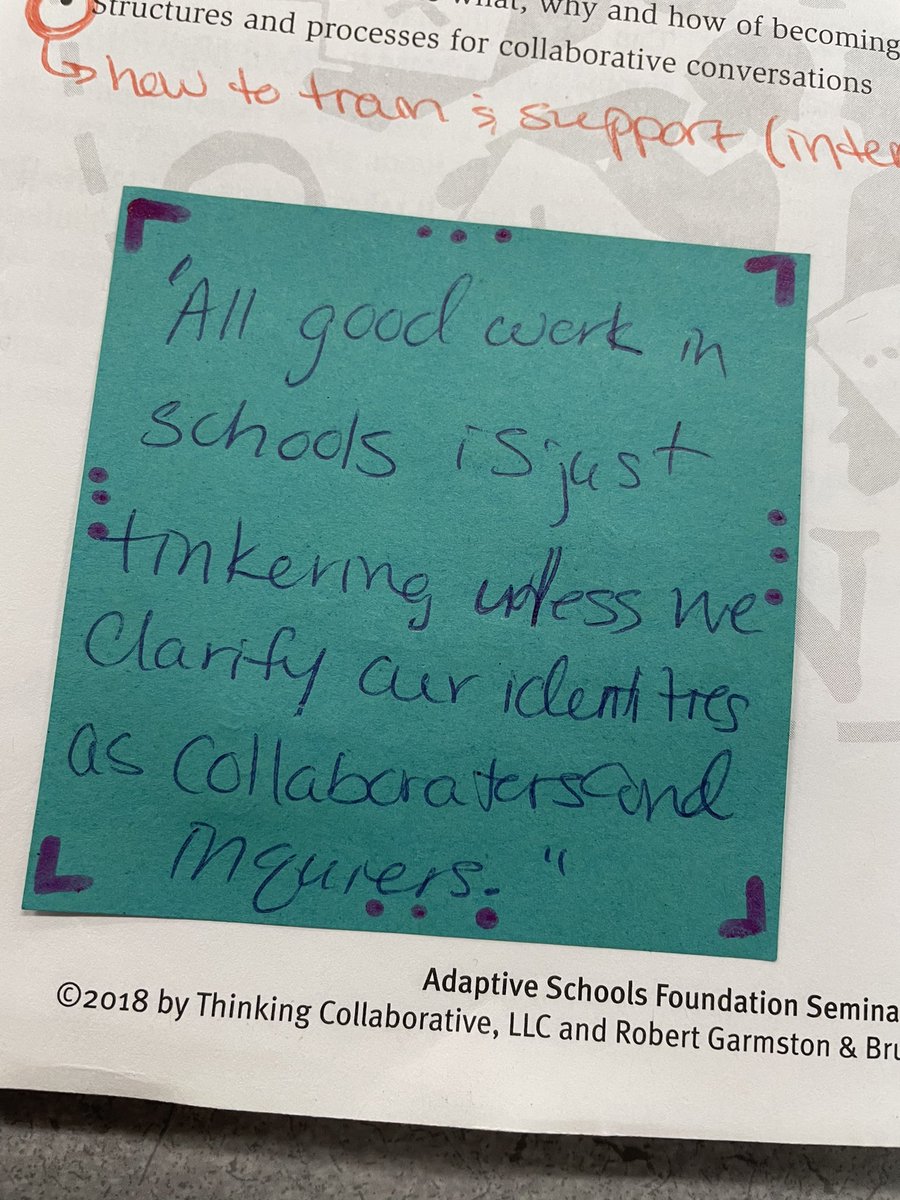 what, why and how of becoming
Structures and processes for collaborative conversations
↳ how to train & support (inter
"All good work in
schools is just
tinkering unless we
Clarify our identities
as Collaboraters and
inquirers."
Adaptive Schools Foundation Semina
©2018 by Thinking Collaborative, LLC and Robert Garmston & Bru